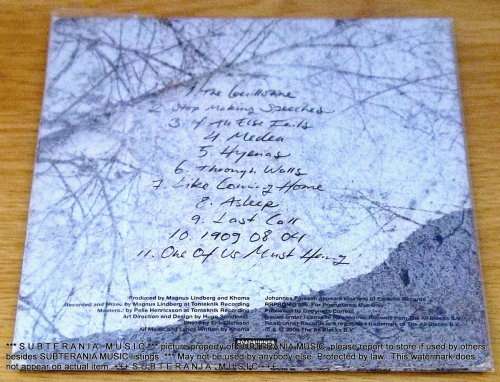 1. The Guillotine
2. Stop Making Speeches
3. If All Else Fails
4. Medea
5. Hyenas
6. Through Walls
7. Like Coming Home
8. Asleep
9. Last Call
10. 1909 08 04
11. One Of Us Must Hang
Produced by Magnus Lindberg and Khoma
Recorded and Mixed by Magnus Lindberg at Tonteknik Recording
Mastered by Pelle Henricsson at Tonteknik Recording
Art Direction and Design by
All Music and Lyrics Written by Khoma
Johannes Persson appears courtesy of Earache Records
ROADRUNNER
*** S U B T E R A N I A . M U S I C *** pictures property of SUBTERANIA MUSIC, please report to store if used by others
besides SUBTERANIA MUSIC listings. *** May not be used by anybody else. Protected by law. This watermark does
not appear on actual item. *** S U B T E R A N I A . M U S I C ***